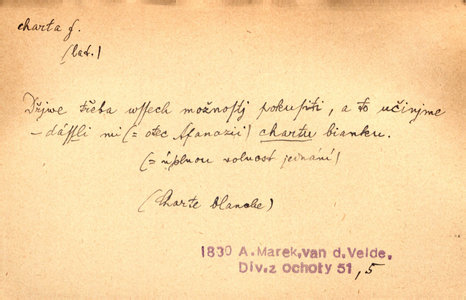 charta f.
(lat.)
Dřjwe třeba wssech možnostj pokusiti, a to učinjme
– dássli mi (= otec Afanazii) chartu bianku.
(= úplnou volnost jednání)
(Charte blanche)
1830 A. Marek, van d. Velde.
Div. z ochoty 51, 5